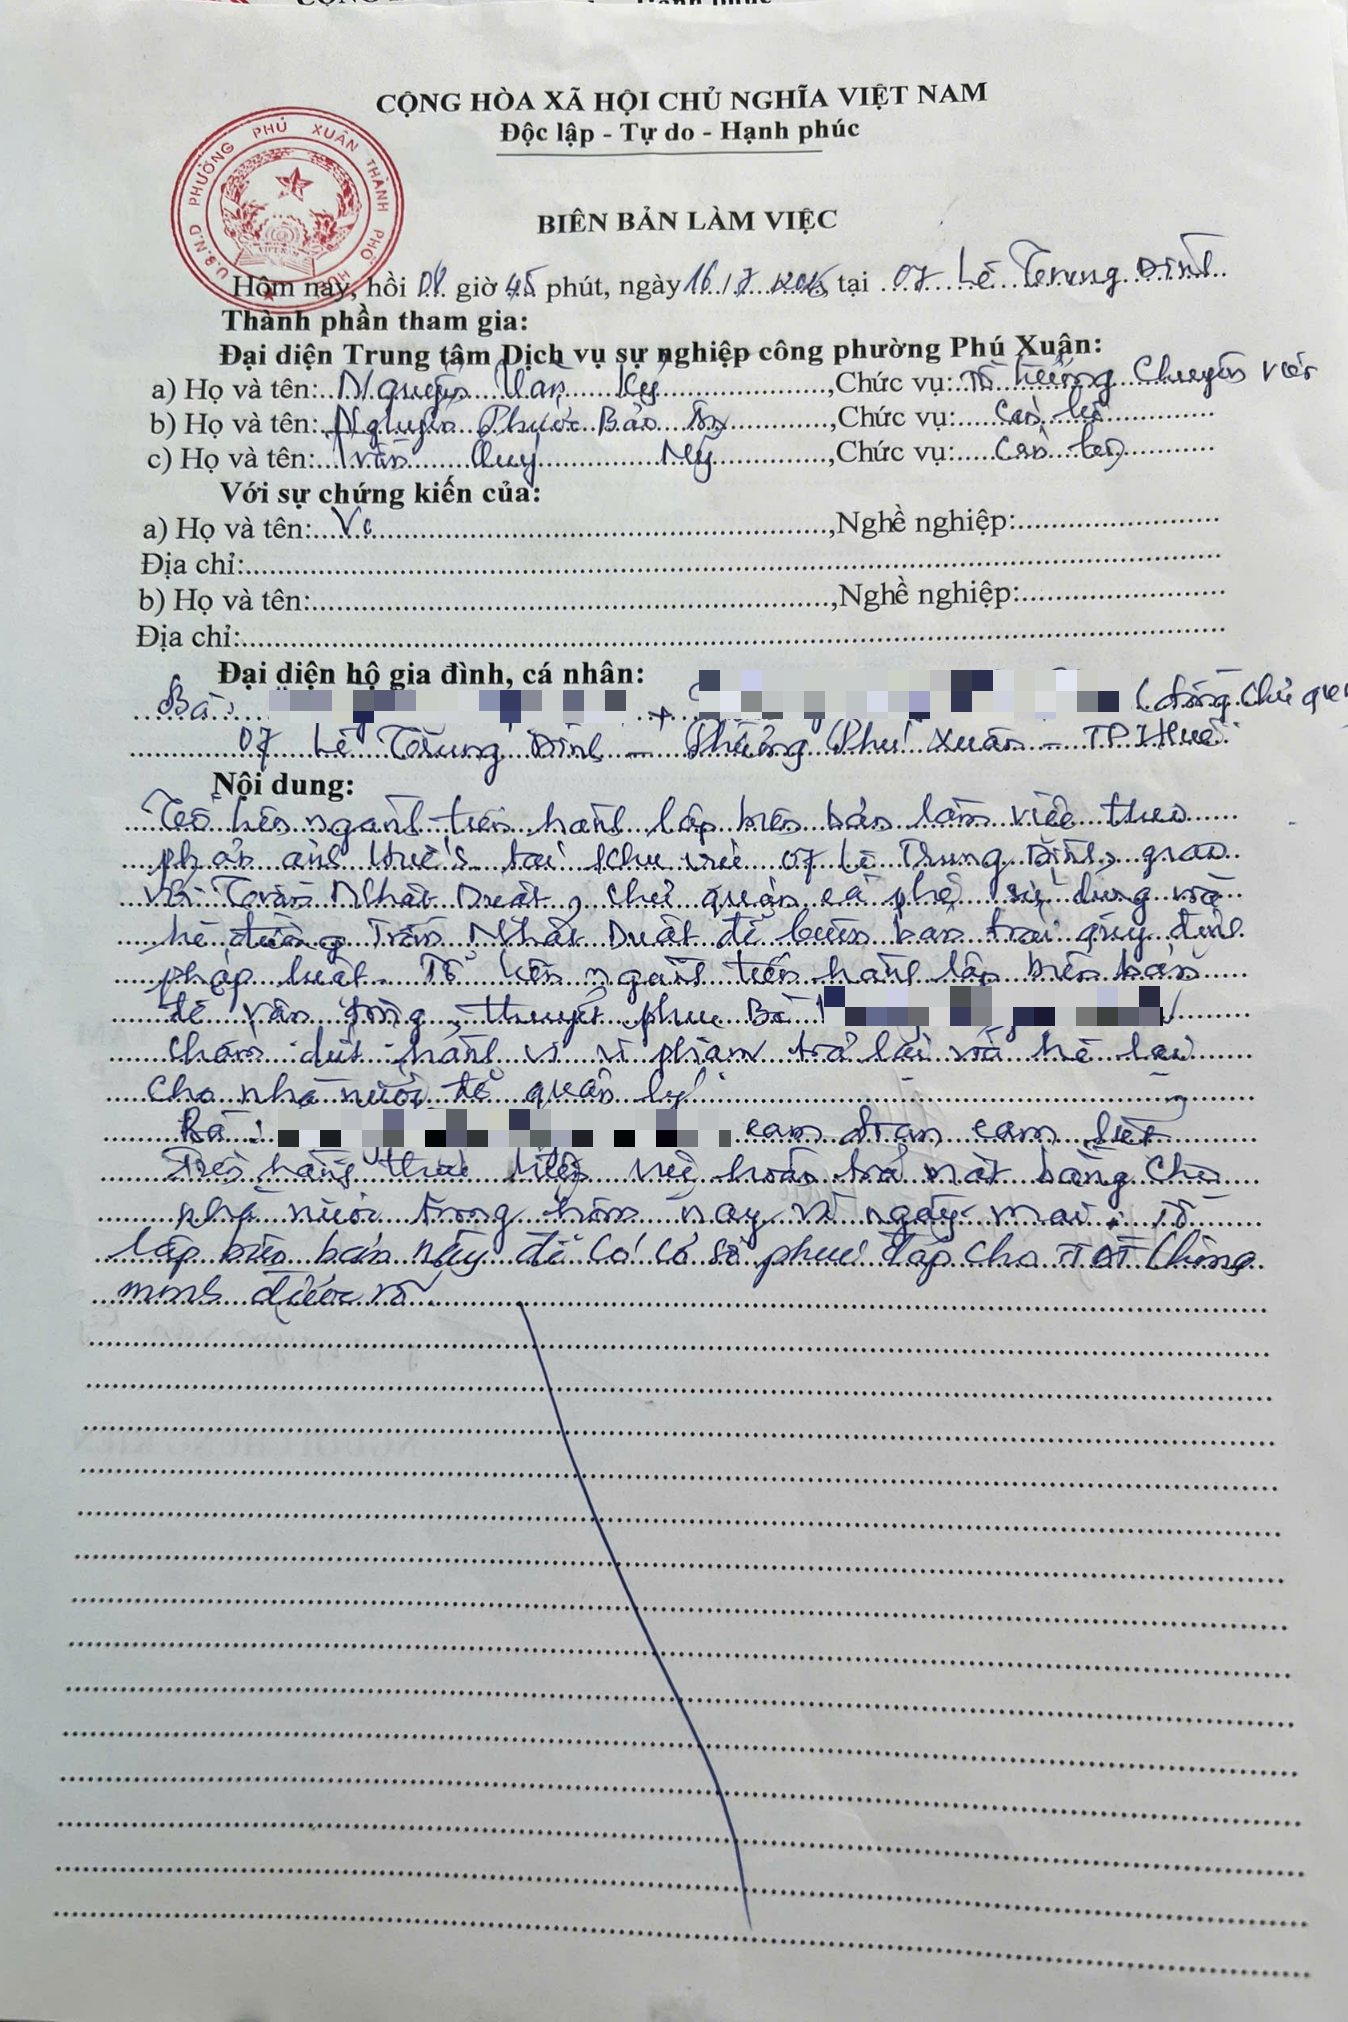 CỘNG HÒA XÃ HỘI CHỦ NGHĨA VIỆT NAM
Độc lập - Tự do - Hạnh phúc
U.B.N.D PHƯỜNG PHÚ XUÂN THÀNH PHỐ HUẾ
BIÊN BẢN LÀM VIỆC
Hôm nay, hồi 08 giờ 45 phút, ngày 16/7/2025, tại 07 Lê Trung Đình
Thành phần tham gia:
Đại diện Trung tâm Dịch vụ sự nghiệp công phường Phú Xuân:
a) Họ và tên: Nguyễn Văn Ký, Chức vụ: Chuyên viên
b) Họ và tên: Nguyễn Phước Bảo Ân, Chức vụ: Cán bộ
c) Họ và tên: Trần Quý Mỹ, Chức vụ: Cán bộ
Với sự chứng kiến của:
a) Họ và tên: , Nghề nghiệp:
Địa chỉ:
b) Họ và tên: , Nghề nghiệp:
Địa chỉ:
Đại diện hộ gia đình, cá nhân:
Bà: + (đồng chủ quán
07 Lê Trung Đình - Phường Phú Xuân - TP Huế
Nội dung:
Tổ liên ngành tiến hành lập biên bản làm việc theo
phản ánh Huế S tại khu vực 07 Lê Trung Đình, giao
với Trần Nhật Duật, chủ quán cà phê sử dụng vỉa
hè đường Trần Nhật Duật để buôn bán trái quy định
pháp luật. Tổ liên ngành tiến hành lập biên bản
để vận động, thuyết phục Bà
chấm dứt hành vi vi phạm trả lại vỉa hè lại
cho nhà nước để quản lý.
Bà: cam đoan cam kết
tiến hành tháo việc hoàn trả mặt bằng cho
nhà nước trong hôm nay và ngày mai. Tổ
lập biên bản này để có cơ sở phúc đáp cho TTĐT thông
minh được rõ